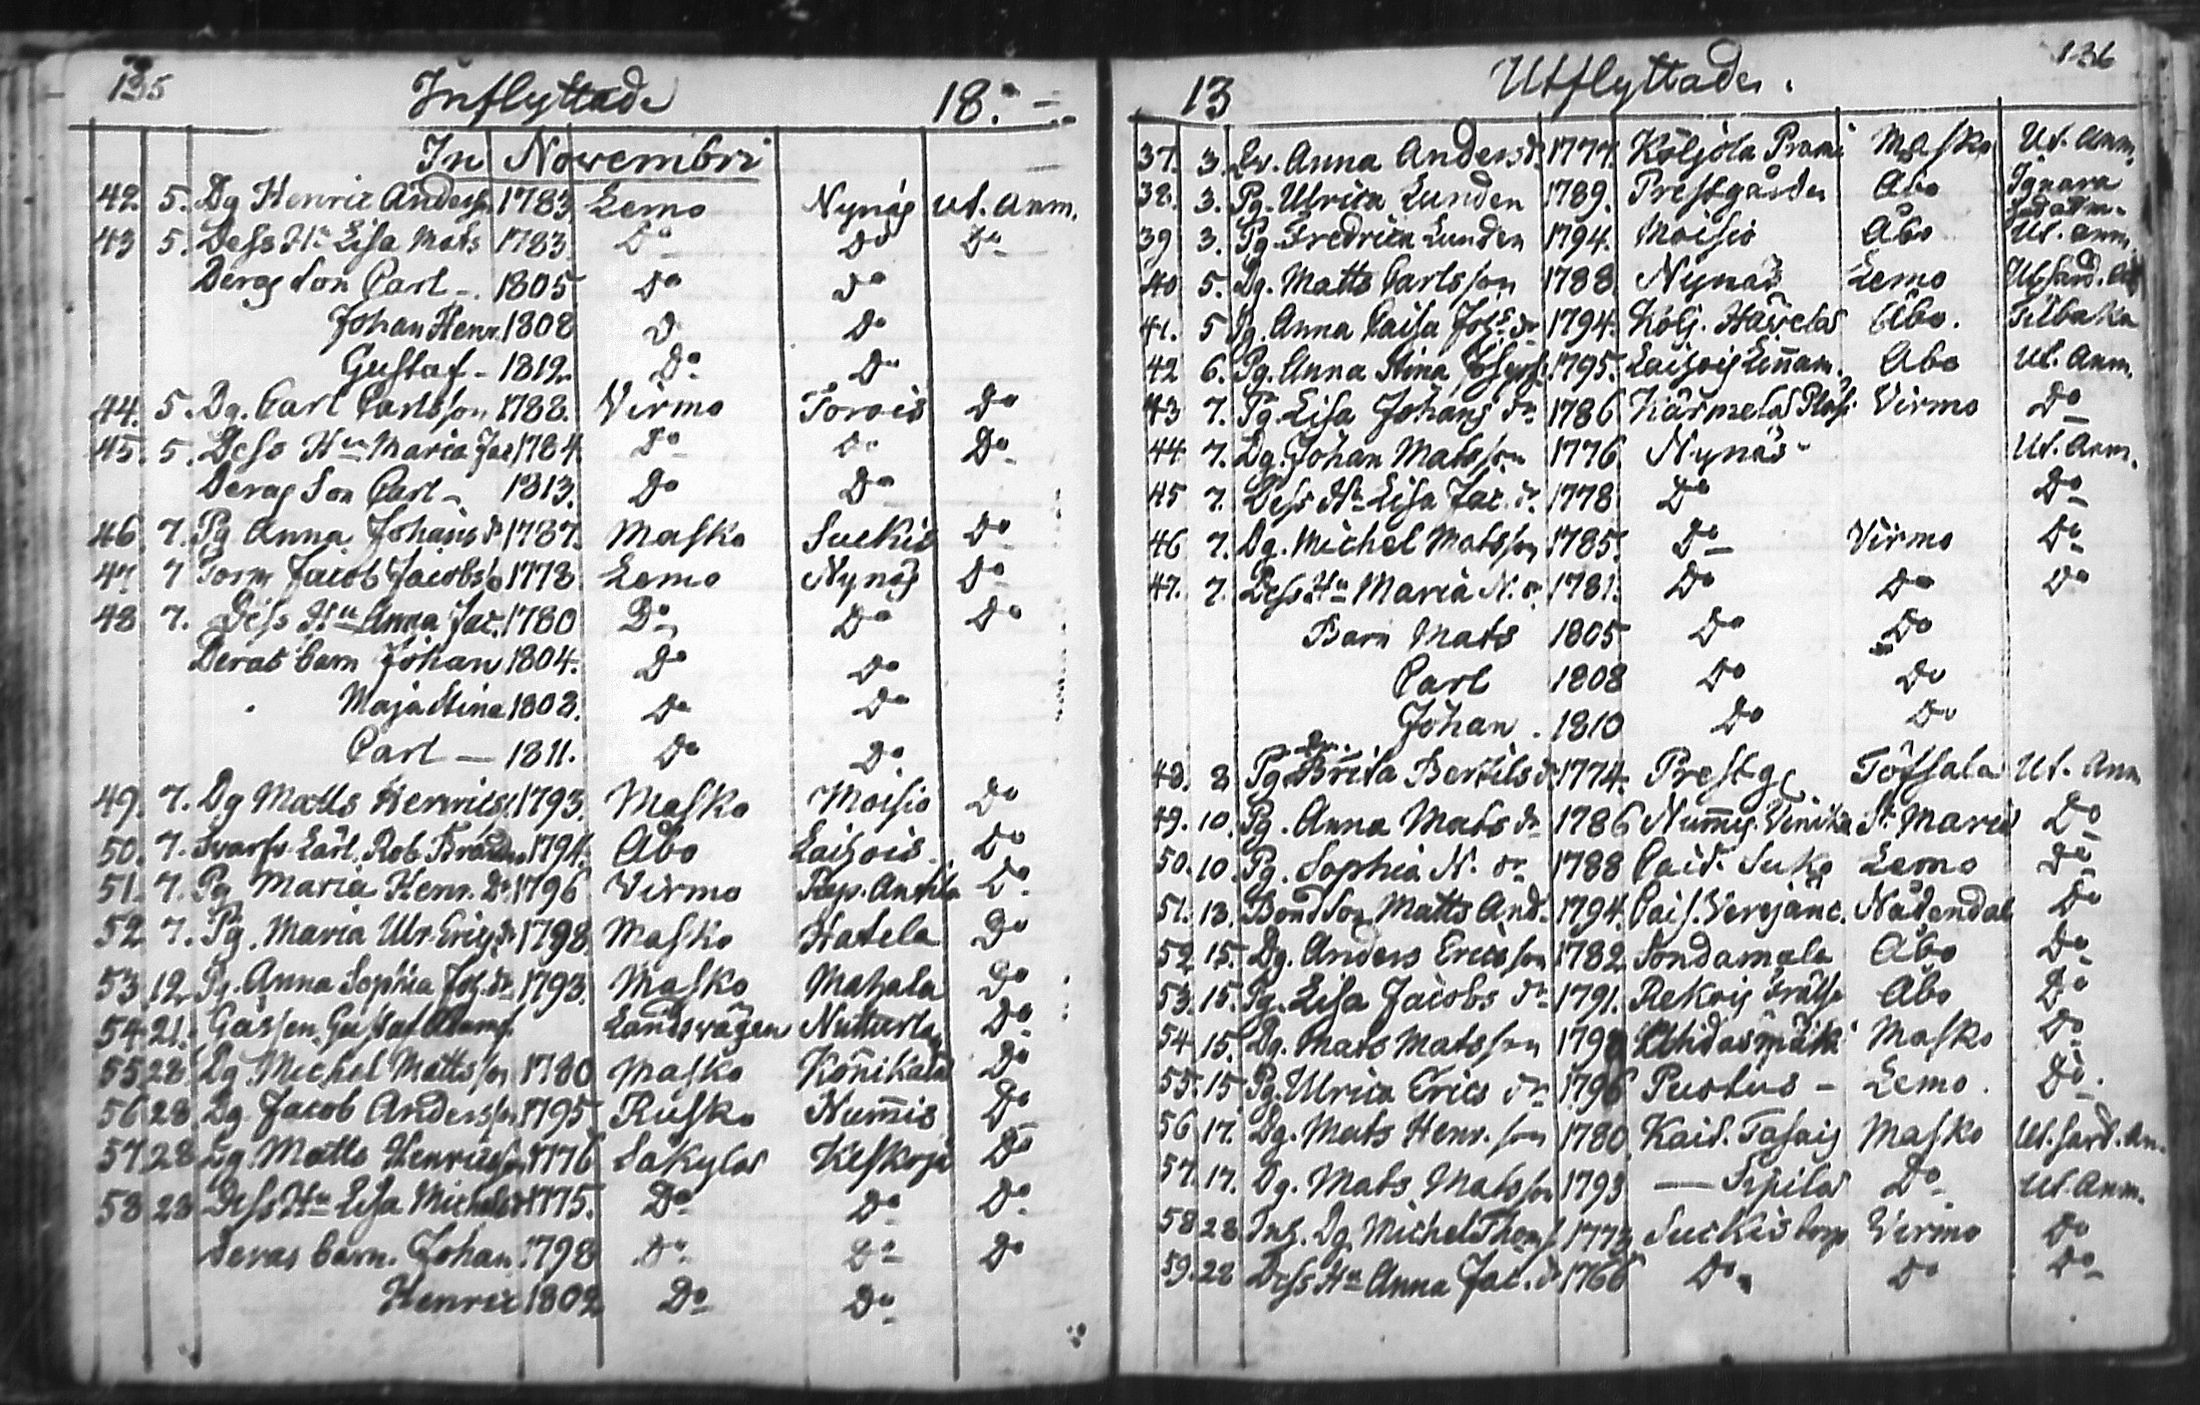 135 Inflyttade 18
In Novembri
42. 5. Dg Henric Anderss. 1783 Lemo Nynäs ut. anm.
43 5. Dess Hu Lisa Mats 1783 Do Do Do
Deras Son Carl - 1805 Do Do
Johan Henr. 1808 D Do
Gustaf - 1812 Do Do
44. 5. Dg. Carl Carlsson 1788. Virmo Torois Do
45. 5. Dess Hu Maria Jac 1784. Do Do Do
Deras Son Carl - 1813. Do Do
46. 7. Pg Anna Johans dr 1787. Masko Suckis Do
47. 7 Torp. Jacob Jacobss 1778 Lemo Nynäs Do
48 7. Dess Hu Anna Jac. 1780 Do Do Do
Deras barn Johan 1804. Do Do
Maja Stina 1808. Do Do
Carl — 1811. Do Do
49. 7. Dg Matts Henrics. 1793. Masko Moisio Do
50. 7. Svarfv. Lärl. Rob. 1794. Åbo Laisois Do
51. 7. Pg Maria Henr. Dr 1796 Virmo Pap. Antila Do
52 7. Pg. Maria Ulr. Erics dr 1798. Masko Hatela Do
53 12. Pg. Anna Sophia Joh. dr 1793. Masko Mahala Do
54 21. Gossen Gustaf Landsvägen Do
55 28 Dg. Michel Mattsson 1780 Masko Koñikala Do
56 28 Dg. Jacob Andersson 1795 Rusko Num̃is Do
57 28 Dg. Matts Henricsson 1776 Säkylä Do
58 28 Dess Hu Lisa Michels dr 1775. Do Do Do
Deras barn. Johan 1798 Do Do Do
Henric 1802 Do Do
13 Utflyttade. 136
37. 3. Anna Anders d. 1777. Köljölä Masko Ut. Anm.
38. 3. Pg. Ulrica Lunden 1789. Prestgården Åbo
39 3. Pg. Fredrica Lunden 1794. Moisio Åbo Ut. anm.
40 5. Dg. Matts Carlsson 1788. Nynäs Lemo
41. 5 Pg. Anna Caisa Johs. dr 1794. Kölj. Åbo. Tilbaka
42 6. Pg. Anna Stina 1795. Laisois Åbo Ut. Anm.
43 7. Pg. Lisa Johans dr 1786 Kärmelä Virmo Do
44 7. Dg. Johan Matsson 1776. Nynäs Ut. Anm.
45 7. Dess Hu Lisa Jac. dr. 1778 Do Do
46 7. Dg. Michel Matsson 1785. Do Virmo Do
47. 7. Dess Hu Maria N. dr. 1781. Do Do Do
Barn Mats 1805 Do Do
Carl 1808 Do Do
Johan. 1810 Do Do
48. 8 Pg Brita Bertils dr 1774. Prestg. Töfsala Ut. Anm
49. 10. Pg. Anna Mats dr 1786 Num̃is. St. Marie Do
50. 10. Pg. Sophia N. dr 1788 Caid. Suko Lemo Do
51. 13. Bond Son Matts And. 1794. Nådendal Do
52 15. Dg. Anders Ericsson 1782 Sondamala Åbo Do
53. 15. Pg. Lisa Jacobs dr 1791. Rekois Åbo Do
54 15. Dg. Mats Matsson Masko Do
55. 15 Pg. Ulrica Erics dr. 1796 Lemo. Do.
56 17. Dg. Mats Henr. son 1780 Kaid. Masko
57. 17. Dg. Mats Matsson 1793 Do Ut. Anm.
58 28. Inh. Dg. Michel Thoms. 1773 Suckis torp Virmo Do
59. 28 Dess Hu Anna Jac. dr 1766 Do Do Do